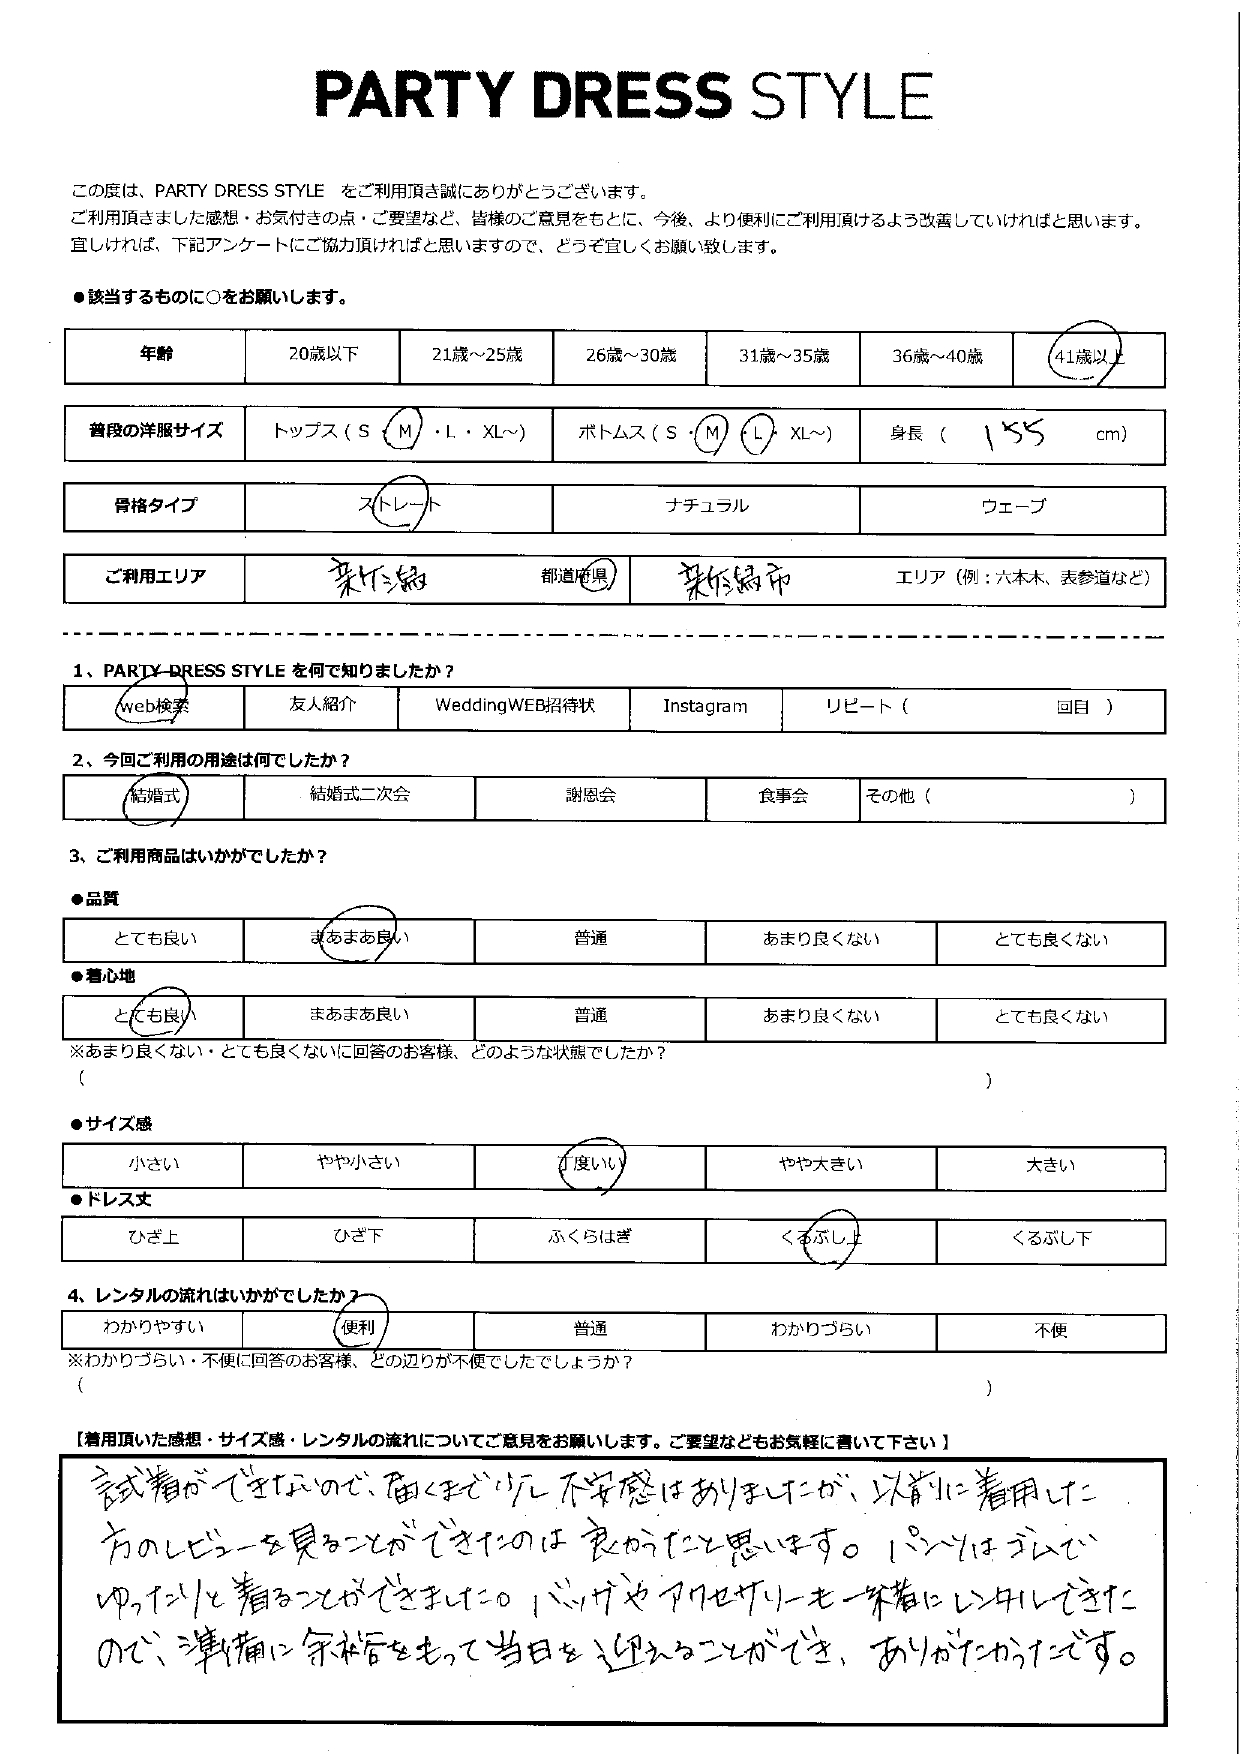 PARTY DRESS STYLE
この度は、PARTY DRESS STYLE をご利用頂き誠にありがとうございます。
ご利用頂きました感想・お気付きの点・ご要望など、皆様のご意見をもとに、今後、より便利にご利用頂けるよう改善していければと思います。
宜しければ、下記アンケートにご協力頂ければと思いますので、どうぞ宜しくお願い致します。
●該当するものに○をお願いします。
年齢 20歳以下 21歳～25歳 26歳～30歳 31歳～35歳 36歳～40歳 41歳以上
普段の洋服サイズ トップス ( S ・ M ・ L ・ XL～) ボトムス ( S ・ M ・ L ・ XL～) 身長 ( 155 cm)
骨格タイプ ストレート ナチュラル ウェーブ
ご利用エリア 新潟 都道府県 新潟市 エリア（例：六本木、表参道など）
1、PARTY DRESS STYLE を何で知りましたか？
web検索 友人紹介 WeddingWEB招待状 Instagram リピート ( 回目 )
2、今回ご利用の用途は何でしたか？
結婚式 結婚式二次会 謝恩会 食事会 その他 ( )
3、ご利用商品はいかがでしたか？
●品質
とても良い まあまあ良い 普通 あまり良くない とても良くない
●着心地
とても良い まあまあ良い 普通 あまり良くない とても良くない
※あまり良くない・とても良くないに回答のお客様、どのような状態でしたか？
( )
●サイズ感
小さい やや小さい 丁度いい やや大きい 大きい
●ドレス丈
ひざ上 ひざ下 ふくらはぎ くるぶし上 くるぶし下
4、レンタルの流れはいかがでしたか？
わかりやすい 便利 普通 わかりづらい 不便
※わかりづらい・不便に回答のお客様、どの辺りが不便でしたでしょうか？
( )
【着用頂いた感想・サイズ感・レンタルの流れについてご意見をお願いします。ご要望などもお気軽に書いて下さい 】
試着ができないので、届くまで少し不安感はありましたが、以前に着用した
方のレビューを見ることができたのは良かったと思います。パンツはゴムで
ゆったりと着ることができました。バッグやアクセサリーも一緒にレンタルできた
ので、準備に余裕をもって当日を迎えることができ、ありがたかったです。